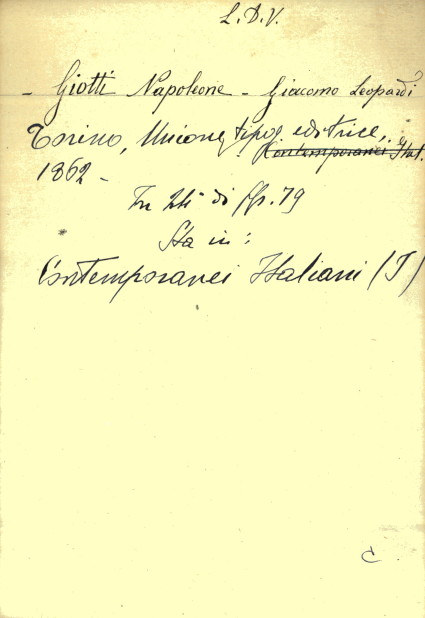 L. D. V.
- Giotti Napoleone - Giacomo Leopardi
Torino, Unione tipog. editrice,
Contemporanei Ital.
1862 -
In 24° di pp. 79
Sta in:
Contemporanei Italiani (I)
C